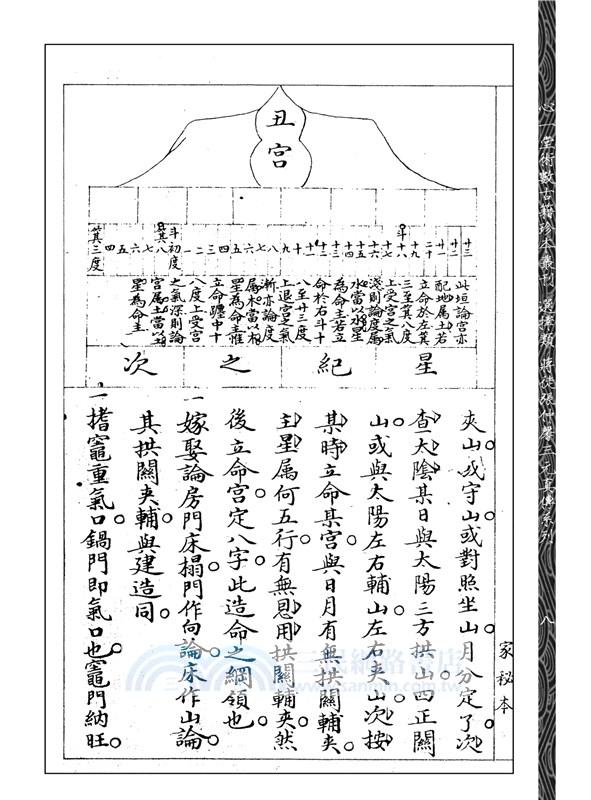 丑宮
廿三
廿二
廿一
二十
十九
斗十八
十七
十六
十五
十四
十三
十二
十一
十
九
八
七
六
五
四
三
二
一
斗初度
箕八
七
六
五
四
箕三度
此垣論宮亦
配地屬土若
立命於左箕
三至箕八度
上受宮之氣
淺則論度屬
水當以水星
為命主若立
命於右斗十
八至廿三度
上退宮之氣
漸亦論度
屬木當以木
星為命主惟
立命躔中十
八度上受宮
之氣深則論
宮屬土當以
星為命主
星紀之次
夾山或守山或對照坐山月分定了次
查太陰某日與太陽三方拱山四正關
山或與太陽左右輔山左右夾山次按
某時立命某宮與日月有無拱關輔夾
主星屬何五行有無恩用拱關輔夾然
後立命宮定八字此造命之綱領也
一嫁娶論房門床榻門作向論床作山論
其拱關夾輔與建造同
一揩竈重氣口鍋門即氣口也竈門納旺
家秘本
心一堂術數古籍珍本叢刊
八
三民網路書店
www.sanmin.com.tw